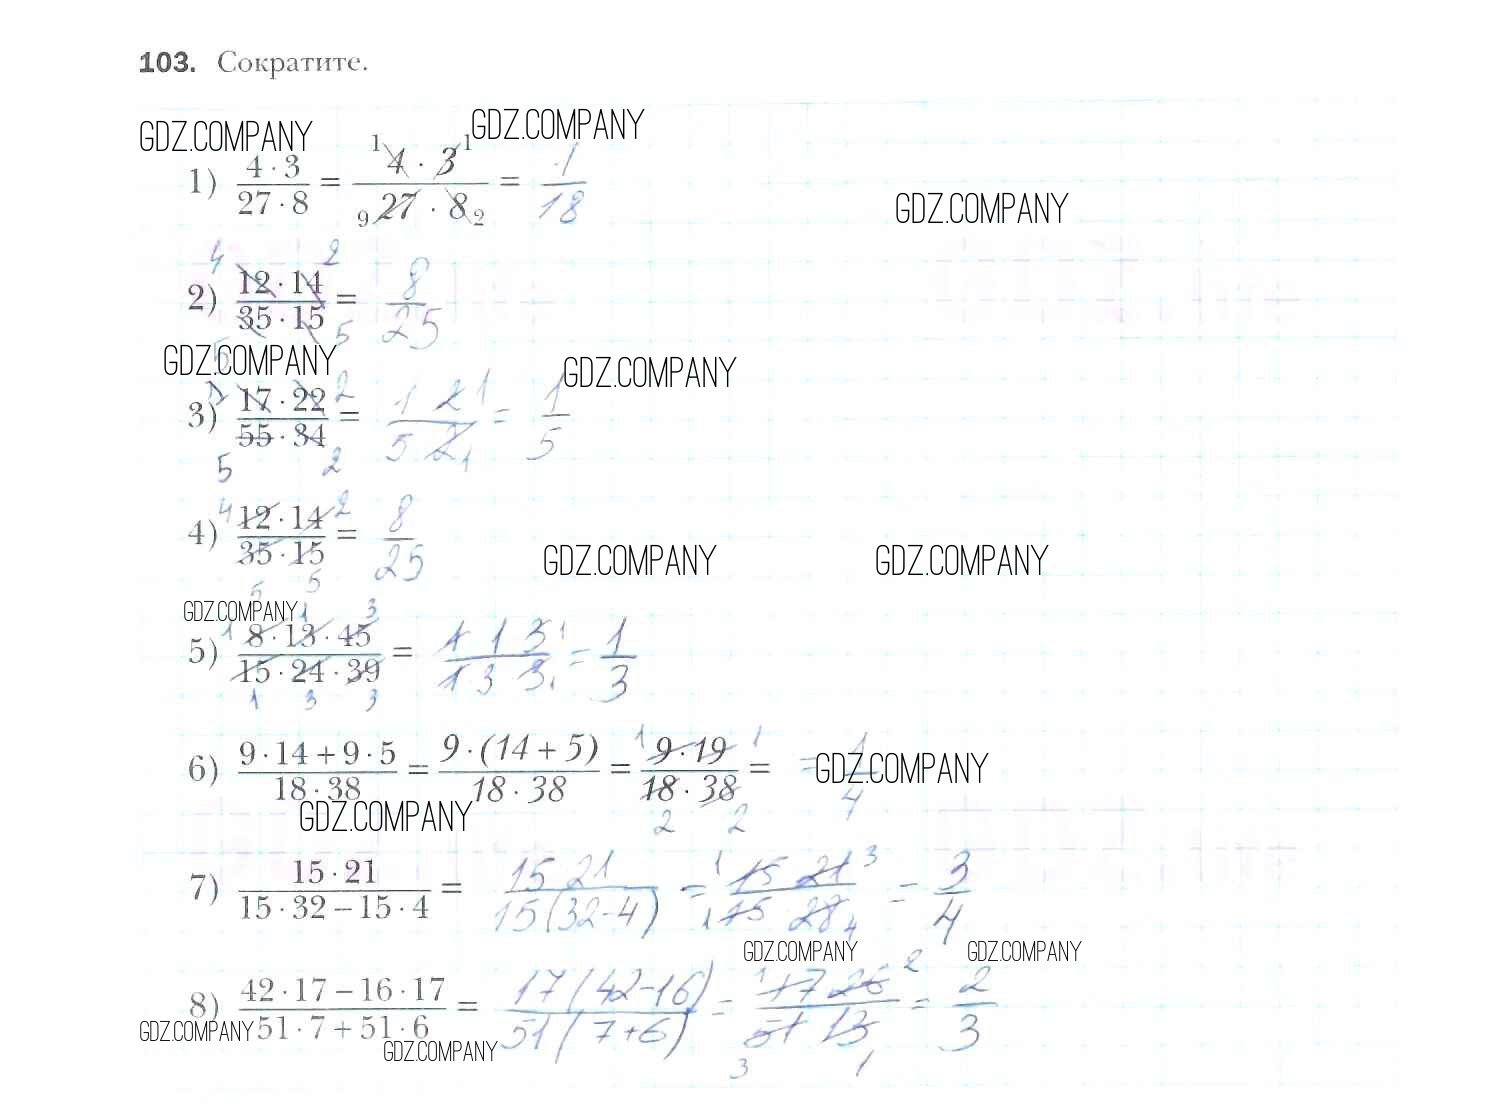 103. Сократите.
GDZ.COMPANY GDZ.COMPANY
1) 4 · 3 / 27 · 8 = 1 4 · 3 1 / 9 27 · 8 2 = 1 / 18
GDZ.COMPANY
4 2
2) 12 · 14 / 35 · 15 = 8 / 25
5 5
GDZ.COMPANY GDZ.COMPANY
3) 1 17 · 22 2 / 55 · 34 = 1 2 1 / 5 2 1 = 1 / 5
5 2
4) 4 12 · 14 2 / 35 · 15 = 8 / 25
5 5
GDZ.COMPANY GDZ.COMPANY
GDZ.COMPANY 1 3
5) 1 8 · 13 · 45 / 15 · 24 · 39 = 1 1 3 1 / 1 3 3 1 = 1 / 3
1 3 3
6) 9 · 14 + 9 · 5 / 18 · 38 = 9 · (14 + 5) / 18 · 38 = 1 9 · 19 1 / 18 · 38 = = 1 / 4
2 2
GDZ.COMPANY
GDZ.COMPANY
7) 15 · 21 / 15 · 32 – 15 · 4 = 15 21 / 15 (32-4) = 1 15 21 3 / 1 15 · 28 4 = 3 / 4
GDZ.COMPANY GDZ.COMPANY
8) 42 · 17 – 16 · 17 / 51 · 7 + 51 · 6 = 17 (42-16) / 51 (7+6) = 1 17 26 2 / 51 13 = 2 / 3
3 1
GDZ.COMPANY
GDZ.COMPANY